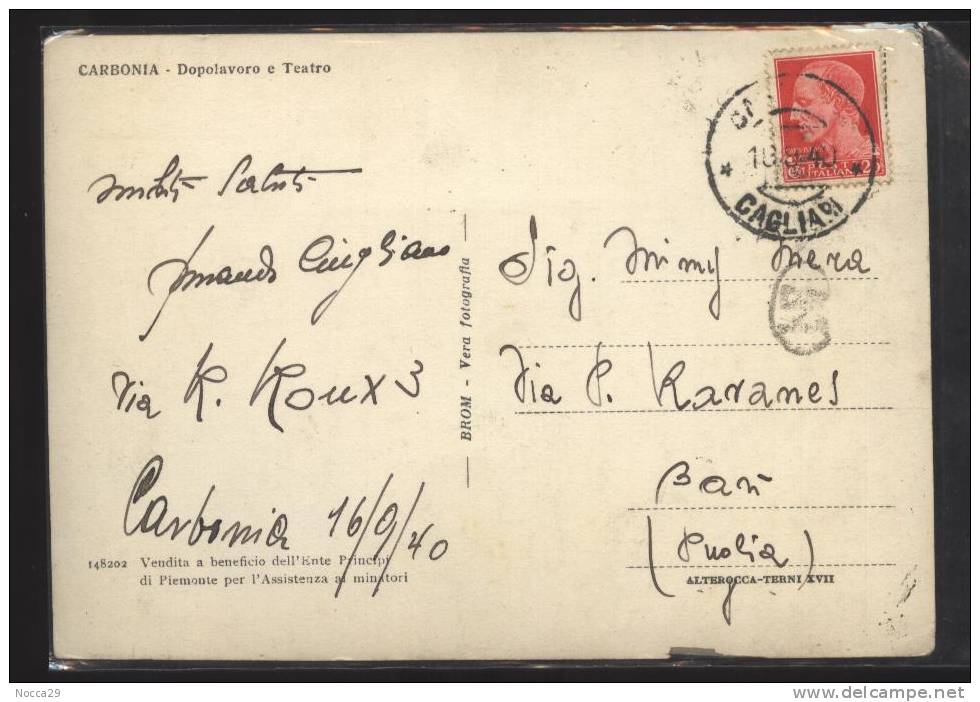 CARBONIA - Dopolavoro e Teatro
Saluti
Armando Cirigliano
Via R. Roux 3
Carbonia 16/9/40
148202 Vendita a beneficio dell'Ente Principi
di Piemonte per l'Assistenza ai minatori
BROM - Vera fotografia
CAGLIARI
ITALIANE
Sig. Mimy Mera
Via P. Ravanas
Bari
(Puglia)
ALTEROCCA-TERNI XVII
Nocca29
www.delcampe.net